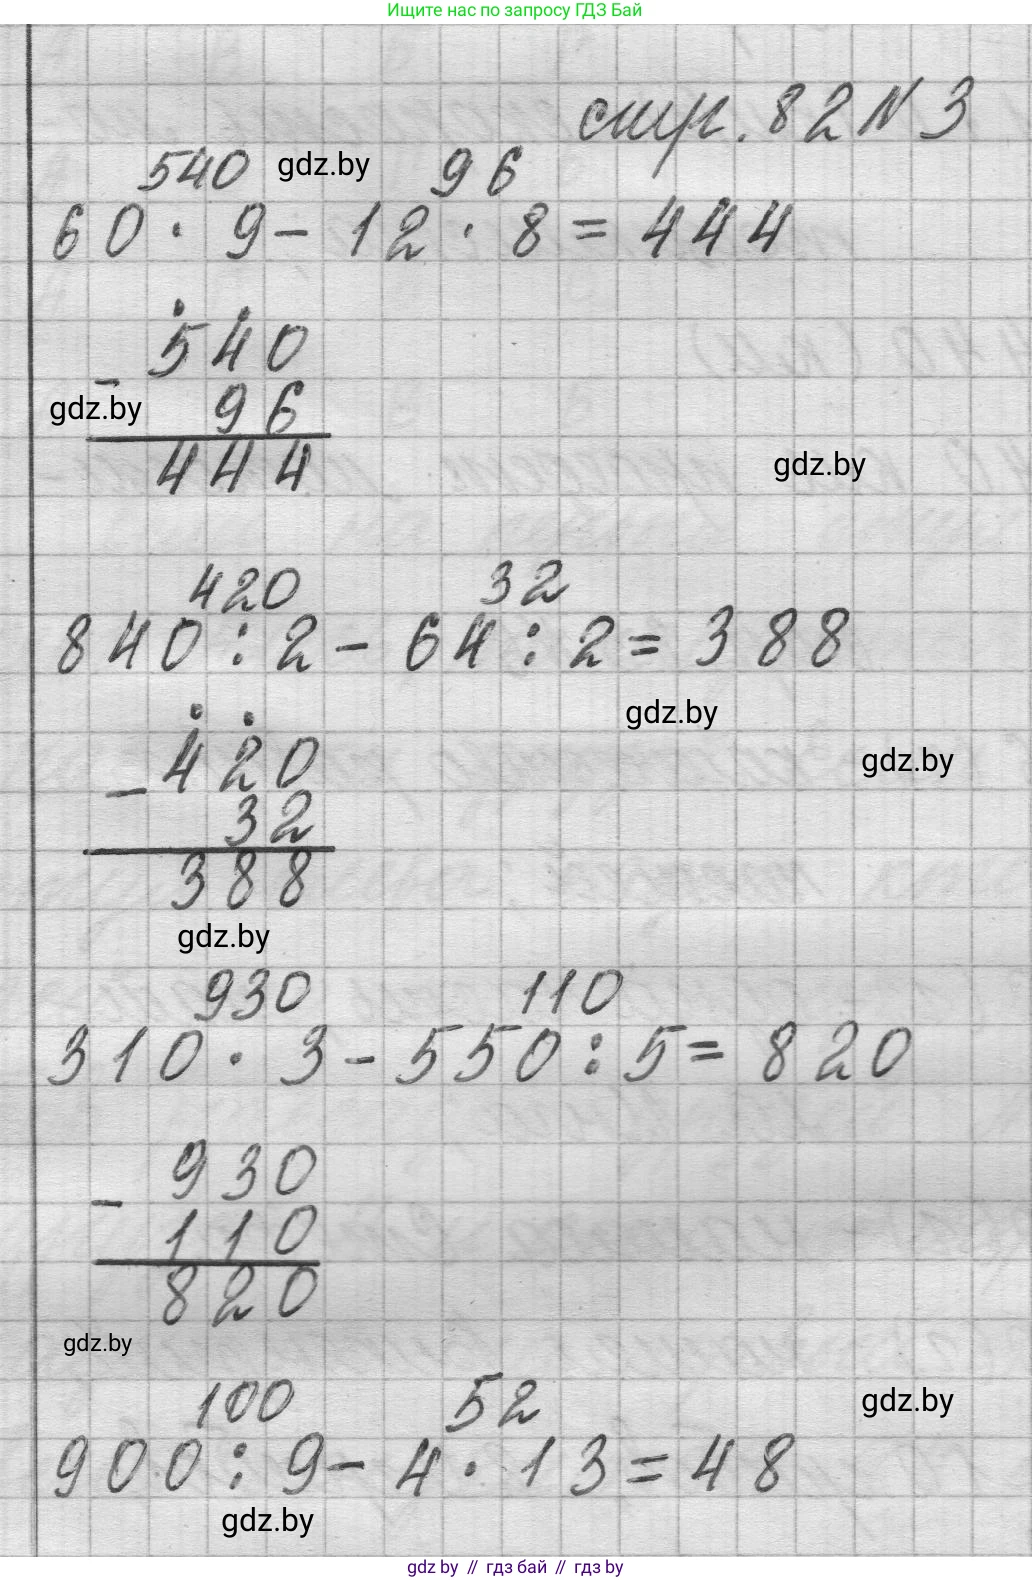 Ищите нас по запросу ГДЗ Бай
стр. 82 N 3
540 gdz.by 96
60 · 9 - 12 · 8 = 444
- 540
gdz.by 96
444
gdz.by
420 32
840 : 2 - 64 : 2 = 388
gdz.by
gdz.by
- 420
32
388
gdz.by
930 110
310 · 3 - 550 : 5 = 820
- 930
110
820
gdz.by
100 52
gdz.by
900 : 9 - 4 · 13 = 48
gdz.by
gdz by // гдз бай // гдз by